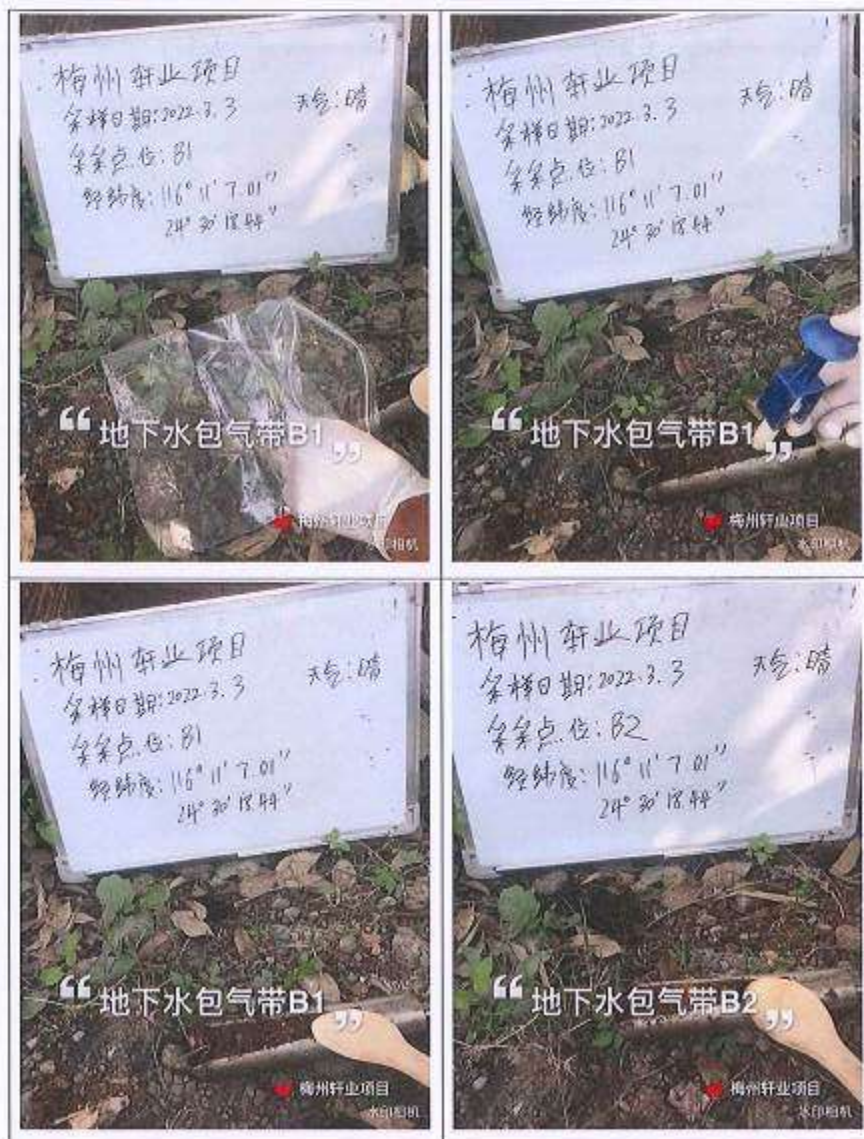 梅州轩业项目
采样日期:2022.3.3 天气:晴
采采点位:B1
经纬度:116° 11' 7.01"
24° 30' 18.44"
“ 地下水包气带B1 ”
梅州轩业项目
水印相机
梅州轩业项目
采样日期:2022.3.3 天气:晴
采采点位:B1
经纬度:116° 11' 7.01"
24° 30' 18.44"
“ 地下水包气带B1 ”
梅州轩业项目
水印相机
梅州轩业项目
采样日期:2022.3.3 天气:晴
采采点位:B1
经纬度:116° 11' 7.01"
24° 30' 18.44"
“ 地下水包气带B1 ”
梅州轩业项目
水印相机
梅州轩业项目
采样日期:2022.3.3 天气:晴
采采点位:B2
经纬度:116° 11' 7.01"
24° 30' 18.44"
“ 地下水包气带B2 ”
梅州轩业项目
水印相机